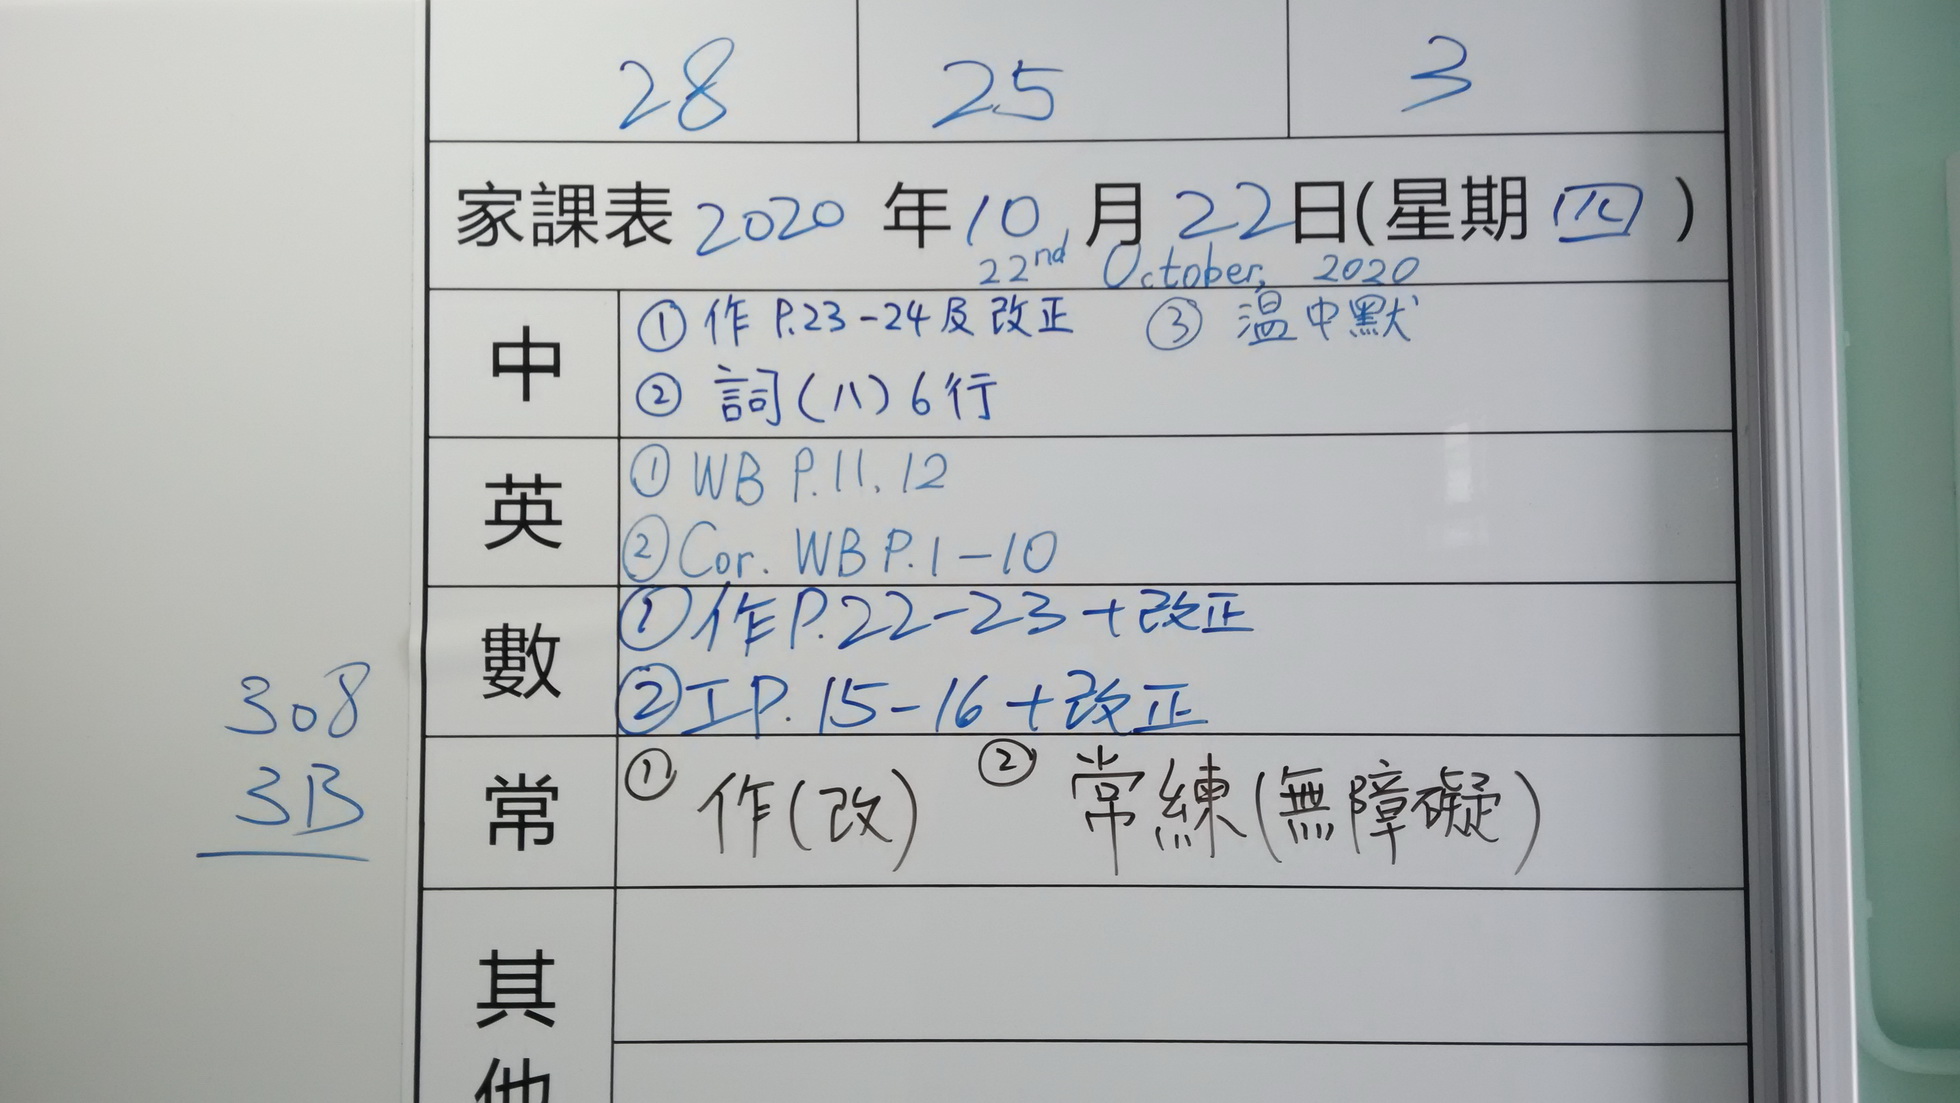 28 25 3
家課表 2020 年 10 月 22 日(星期 四 )
22nd October, 2020
中 ① 作 P.23-24 及 改正 ③ 溫中默
② 詞(八) 6行
英 ① WB P.11, 12
② Cor. WB P.1-10
數 ① 作 P.22-23 + 改正
② 工 P.15-16 + 改正
308
3B
常 ① 作(改) ② 常練(無障礙)
其
他